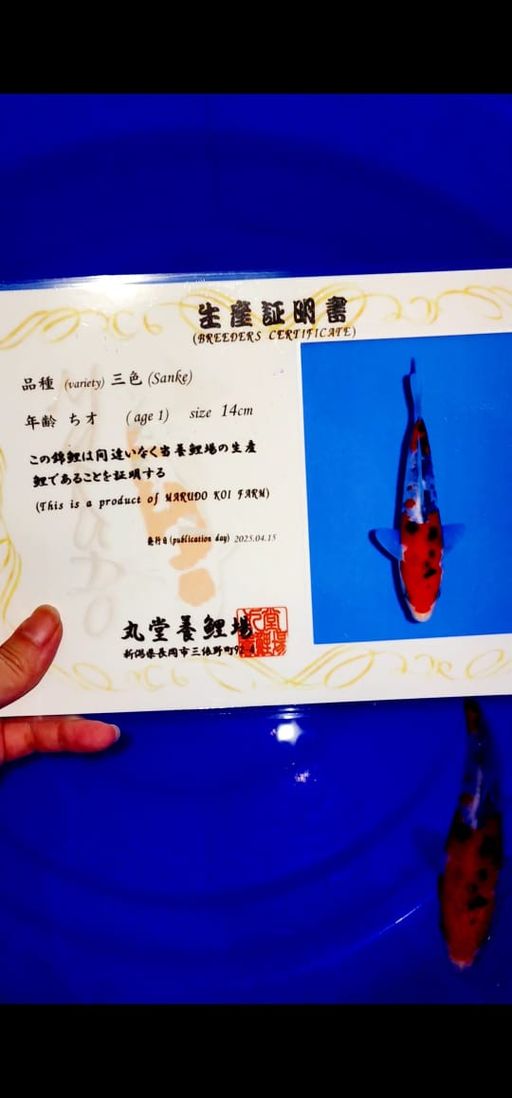 生産証明書
(BREEDERS CERTIFICATE)
品種 (variety) 三色 (Sanke)
年齢 当才 (age 1) size 14cm
この錦鯉は間違いなく当養鯉場の生産
鯉であることを証明する
(This is a product of MARUDO KOI FARM)
発行日(publication day) 2025.04.15
丸堂養鯉場
新潟県長岡市三俵野町